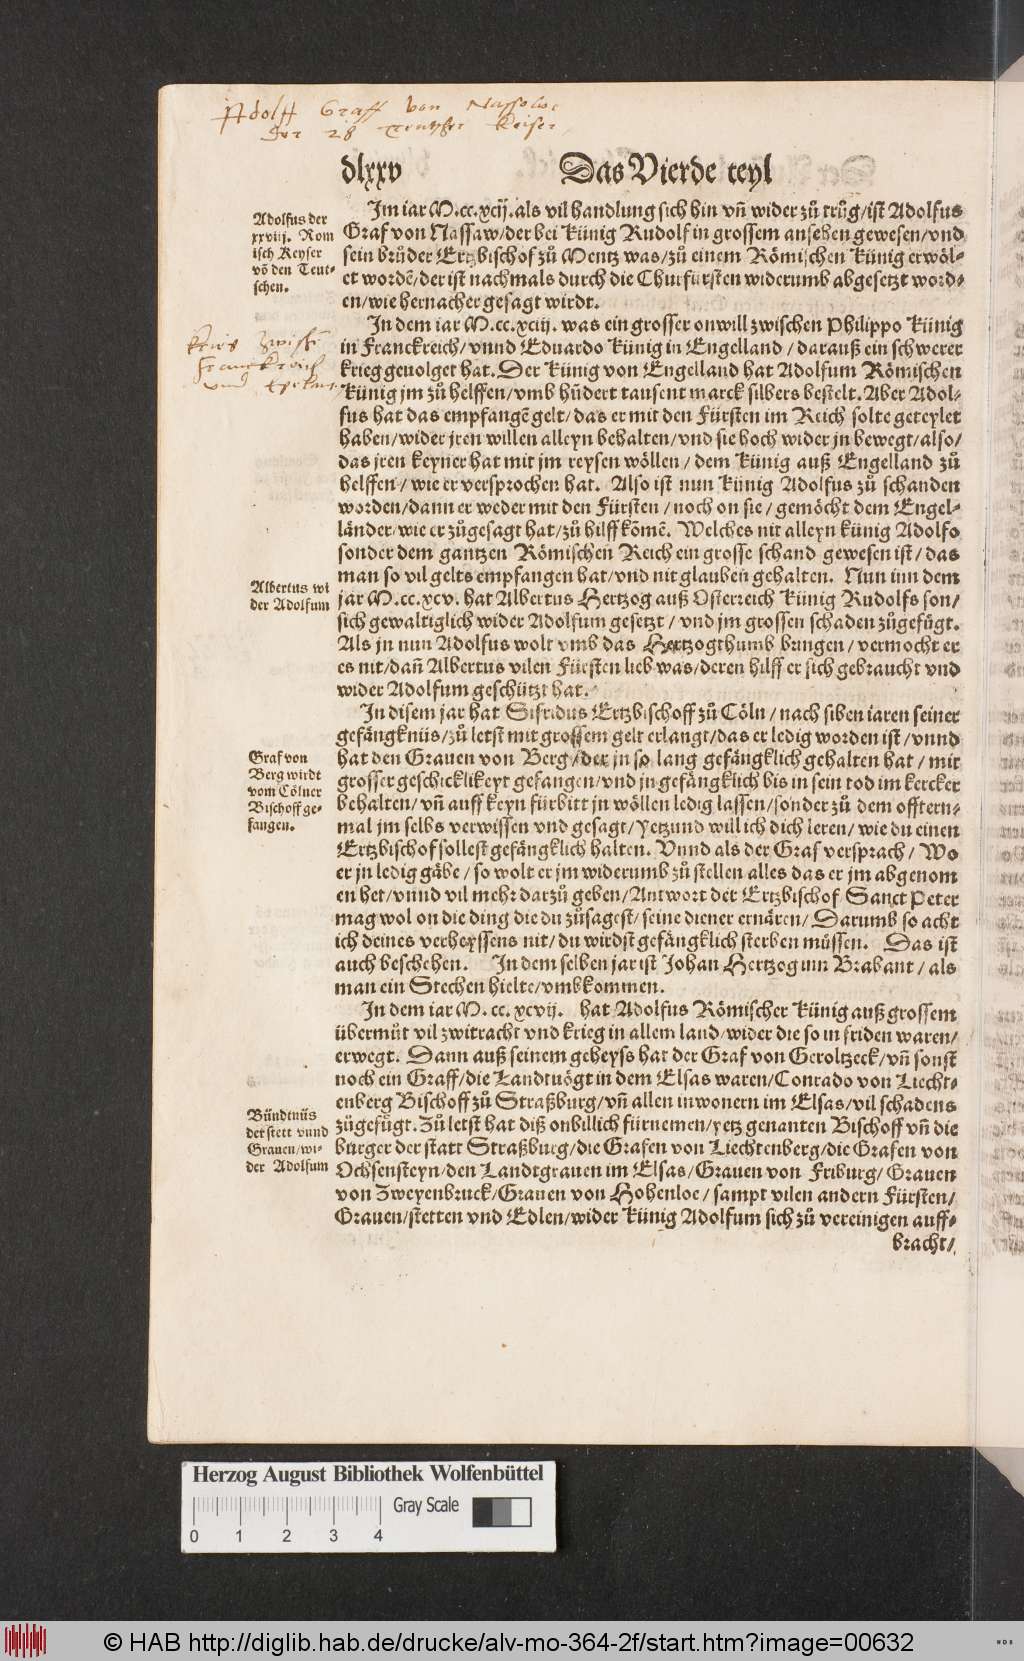 Adolff Graff von Nassow
der 28 Teutscher Keiser
dlxxv Das Vierde teyl
Adolfus der
xxviij. Rom
isch Keyser
vō den Teut-
schen.
Im iar M.cc.xcij. als vil handlung sich hin vñ wider zů trůg/ist Adolfus
Graf von Nassaw/der bei Künig Rudolf in grossem ansehen gewesen/vnd
sein brůder Ertzbischof zů Mentz was/zů einem Römischen Künig erwöl-
et wordē/der ist nachmals durch die Churfürsten widerumb abgesetzt word-
en/wie hernacher gesagt wirdt.
In dem iar M.cc.xciij. was ein grosser onwill zwischen Philippo Künig
in Franckreich/vnnd Eduardo Künig in Engelland/darauß ein schwerer
krieg geuolget hat. Der Künig von Engelland hat Adolfum Römischen
Künig jm zů helffen/vmb hūdert tausent marck silbers bestelt. Aber Adol-
fus hat das empfangē gelt/das er mit den Fürsten im Reich solte geteylet
haben/wider jren willen alleyn behalten/vnd sie hoch wider jn bewegt/also/
das jren keyner hat mit jm reysen wöllen/dem Künig auß Engelland zů
helffen/wie er versprochen hat. Also ist nun Künig Adolfus zů schanden
worden/dann er weder mit den Fürsten/noch on sie/gemöcht dem Engel-
länder/wie er zůgesagt hat/zů hilff kōmē. Welches nit alleyn künig Adolfo
sonder dem gantzen Römischen Reich ein grosse schand gewesen ist/das
man so vil gelts empfangen hat/vnd nit glauben gehalten. Nun inn dem
jar M.cc.xcv. hat Albertus Hertzog auß Osterreich Künig Rudolfs son/
sich gewaltiglich wider Adolfum gesetzt/vnd jm grossen schaden zůgefügt.
Als jn nun Adolfus wolt vmb das Hertzogthumb bringen/vermocht er
es nit/dañ Albertus vilen Fürsten lieb was/deren hilff er sich gebraucht vnd
wider Adolfum geschützt hat.
krieg zwische
Franckreich
vnd
Albertus wi
der Adolfum
In disem jar hat Sifridus Ertzbischoff zů Cöln/nach siben iaren seiner
gefängknüs/zů letst mit grossem gelt erlangt/das er ledig worden ist/vnnd
hat den Grauen von Berg/der jn so lang gefängklich gehalten hat/mit
grosser geschicklikeyt gefangen/vnd jn gefängklich bis in sein tod im kercker
behalten/vñ auff keyn fürbitt jn wöllen ledig lassen/sonder zů dem offtern-
mal jm selbs verwissen vnd gesagt/Yetzund will ich dich leren/wie du einen
Ertzbischof sollest gefängklich halten. Vnnd als der Graf versprach/Wo
er jn ledig gäbe/so wolt er jm widerumb zů stellen alles das er jm abgenom
en het/vnnd vil mehr darzů geben/Antwort der Ertzbischof/Sanct Peter
mag wol on die ding die du zůsagest/seine diener ernären/Darumb so acht
ich deines verheyssens nit/du wirdst gefängklich sterben müssen. Das ist
auch beschehen. In dem selben jar ist Johan Hertzog inn Brabant/als
man ein Stechen hielte/vmbkommen.
Graf von
Berg wirdt
vom Cölner
Bischoff ge-
fangen.
In dem iar M.cc.xcvij. hat Adolfus Römischer Künig auß grossem
übermůt vil zwitracht vnd krieg in allem land/wider die so in friden waren/
erwegt. Dann auß seinem geheyss hat der Graf von Geroltzeck/vñ sonst
noch ein Graff/die Landtuögt in dem Elsas waren/Conrado von Liecht-
enberg Bischoff zů Straßburg/vñ allen inwonern im Elsas/vil schadens
zůgefügt. Zů letst hat diß onbillich fürnemen/yetz genanten Bischoff vñ die
burger der statt Straßburg/die Grafen von Liechtenberg/die Grafen von
Ochsensteyn/den Landtgrauen im Elsas/Grauen von Friburg/Grauen
von Zweyenbruck/Grauen von Hohenloe/sampt vilen andern Fürsten/
Grauen/stetten vnd Edlen/wider Künig Adolfum sich zů vereinigen auff-
bracht/
Bündtnüs
der stett vnnd
Grauen/wi-
der Adolfum
Herzog August Bibliothek Wolfenbüttel
Gray Scale
0 1 2 3 4
© HAB http://diglib.hab.de/drucke/alv-mo-364-2f/start.htm?image=00632